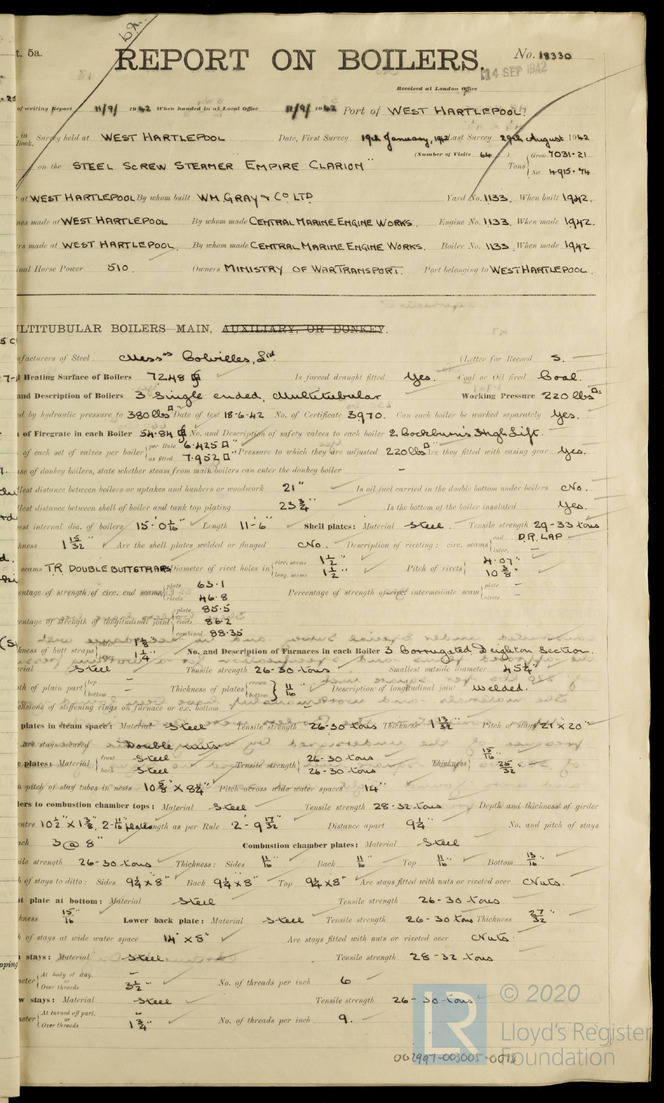 t. 5a.
REPORT ON BOILERS.
No. 18330
14 SEP 1942
Received at London Office
of writing Report 11/9/1942 When handed in at Local Office 11/9/1942 Port of WEST HARTLEPOOL
Survey held at WEST HARTLEPOOL Date, First Survey 19th January, 1942 Last Survey 29th August 1942
(Number of Visits 64 )
on the STEEL SCREW STEAMER EMPIRE CLARION" Tons Gross 7031.21
Net 4915.74
at WEST HARTLEPOOL By whom built WM. GRAY & CO LTD Yard No. 1133. When built 1942.
nes made at WEST HARTLEPOOL By whom made CENTRAL MARINE ENGINE WORKS. Engine No. 1133. When made 1942.
rs made at WEST HARTLEPOOL. By whom made CENTRAL MARINE ENGINE WORKS. Boiler No. 1133. When made 1942.
inal Horse Power 510. Owners MINISTRY OF WAR TRANSPORT. Port belonging to WEST HARTLEPOOL.
ULTITUBULAR BOILERS MAIN, AUXILIARY, OR DONKEY.
facturers of Steel Messrs Colvilles, Ltd (Letter for Record S.
Heating Surface of Boilers 7248 Is forced draught fitted Yes. Coal or Oil fired Coal.
and Description of Boilers 3 Single ended, Multitubular Working Pressure 220 lbs
d by hydraulic pressure to 380 lbs Date of test 18-6-42 No. of Certificate 3970. Can each boiler be worked separately Yes.
of Firegrate in each Boiler 54.84 No. and Description of safety valves to each boiler 2 Cockburn's High Lift.
of each set of valves per boiler per Rule 6.425 as fitted 7.952 Pressure to which they are adjusted 220 lbs Are they fitted with easing gear Yes.
se of donkey boilers, state whether steam from main boilers can enter the donkey boiler –
llest distance between boilers or uptakes and bunkers or woodwork 21" Is oil fuel carried in the double bottom under boilers No.
llest distance between shell of boiler and tank top plating 23 3/4" Is the bottom of the boiler insulated Yes.
est internal dia. of boilers 15'-0 1/16" Length 11'-6" Shell plates: Material Steel. Tensile strength 29-33 tons
kness 1 15/32" Are the shell plates welded or flanged No. Description of riveting: circ. seams end D.R. LAP
inter. –
seams TR DOUBLE BUTT STRAPS Diameter of rivet holes in circ. seams 1 1/2" long. seams 1 1/2" Pitch of rivets 4.07" 10 3/8"
entage of strength of circ. end seams plate 63.1 rivets 46.8 Percentage of strength of circ. intermediate seam plate – rivets –
entage of strength of longitudinal joint plate 85.5 rivets 86.2 combined 88.35
kness of butt straps 1 1/8 1 1/4" No. and Description of Furnaces in each Boiler 3 Corrugated Deighton Section.
rial Steel Tensile strength 26-30 tons Smallest outside diameter 45 1/4"
th of plain part top – bottom – Thickness of plates crown bottom 11/16" Description of longitudinal joint Welded.
nsions of stiffening rings on furnace or c.c. bottom
plates in steam space: Material Steel Tensile strength 26-30 tons Thickness 1 13/32" Pitch of stays 21" x 20"
are stays secured Double nuts
plates: Material front Steel back Steel Tensile strength 26-30 tons 26-30 tons Thickness 15/16" 25/32"
pitch of stay tubes in nests 10 5/8" x 8 1/4" Pitch across wide water spaces 14"
ers to combustion chamber tops: Material Steel Tensile strength 28-32 tons Depth and thickness of girder
entre 10 1/2" x 1 3/8, 2-11/16 plates Length as per Rule 2'-9 17/32" Distance apart 9 1/4" No. and pitch of stays
ach 3 @ 8" Combustion chamber plates: Material Steel
ile strength 26-30 tons Thickness: Sides 11/16" Back 11/16" Top 11/16" Bottom 13/16"
h of stays to ditto: Sides 9 1/4" x 8" Back 9 1/4" x 8" Top 9 1/4" x 8" Are stays fitted with nuts or riveted over Nuts.
t plate at bottom: Material Steel Tensile strength 26-30 tons
kness 15/16" Lower back plate: Material Steel Tensile strength 26-30 tons Thickness 27/32"
h of stays at wide water space 14" x 8" Are stays fitted with nuts or riveted over Nuts.
stays: Material Steel Tensile strength 28-32 tons
meter At body of stay. – or Over threads 3 1/2" No. of threads per inch 6
w stays: Material Steel Tensile strength 26-30 tons
meter At turned off part. – or Over threads 1 3/4" No. of threads per inch 9.
© 2020
LR Lloyd's Register
Foundation
002997-003005-0075